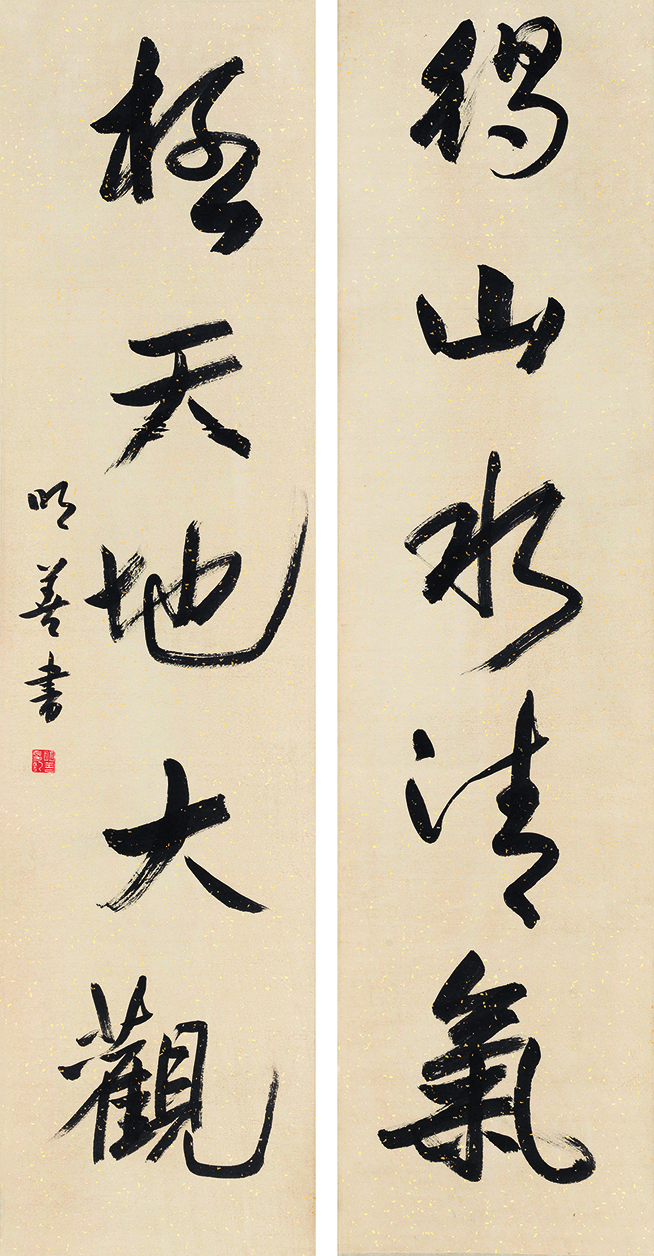 得山水清氣
極天地大觀
明善書